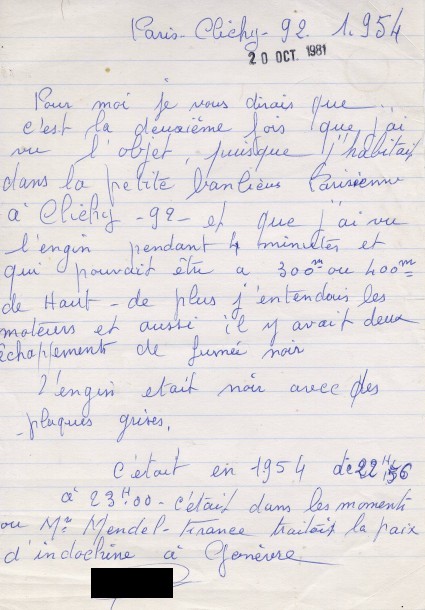 Paris-Clichy-92. 1.954
20 OCT. 1981
Pour moi je vous dirais que
c'est la deuxième fois que j'ai
vu l'objet, puisque j'habitais
dans la petite banlieue Parisienne
à Clichy -92- et que j'ai vu
l'engin pendant 4 minutes et
qui pouvait être a 300m ou 400m
de Haut - de plus j'entendais les
moteurs et aussi il y avait deux
échappements de fumée noir
L'engin etait noir avec des
plaques grises.
C'était en 1954 de 22H56
à 23H00 - c'était dans les moments
ou Mr Mendel-France traitait la paix
d'indochine à Genèvre